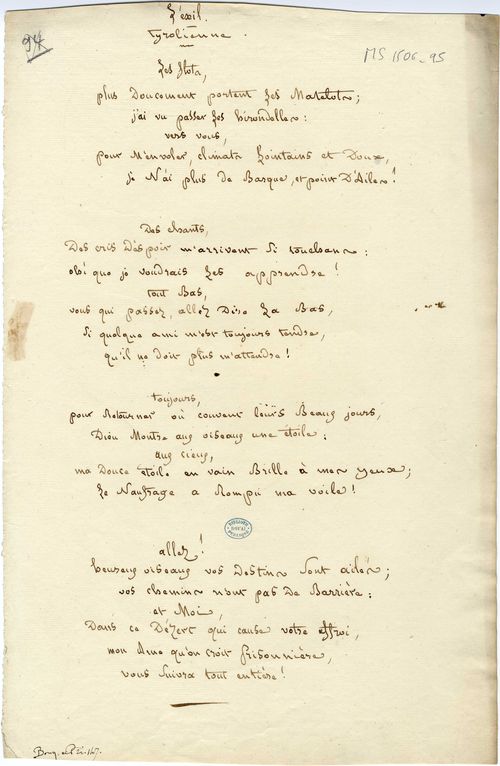 L'exil.
tyrolienne.
94
MS 1506-95
Les flots,
plus Doucement portent Les Matelots;
j'ai vu passer Les hirondelles:
vers vous,
pour M'envoler, climats Lointains et Doux,
je N'ai plus de Basque, et point D'Ailes!
Des chants,
Des cris D'espoir m'arrivent si touchans:
oh! que je voudrais Les apprendre!
tout Bas,
vous qui passez, allez Dire La Bas,
si quelque ami m'est toujours tendre,
qu'il ne Doit plus m'attendre!
toujours,
pour Retourner où couvent leurs Beaux jours,
Dieu Montre aux oiseaux une étoile:
aux cieux,
ma Douce étoile en vain Brille à mes yeux;
Le Naufrage a Rompu ma voile!
allez!
heureux oiseaux vos Destins sont ailés;
vos chemins n'ont pas De Barrière:
et Moi,
Dans ce Dézert qui cause votre effroi,
mon Ame qu'on croit Prisonnière,
vous suivra tout entière!